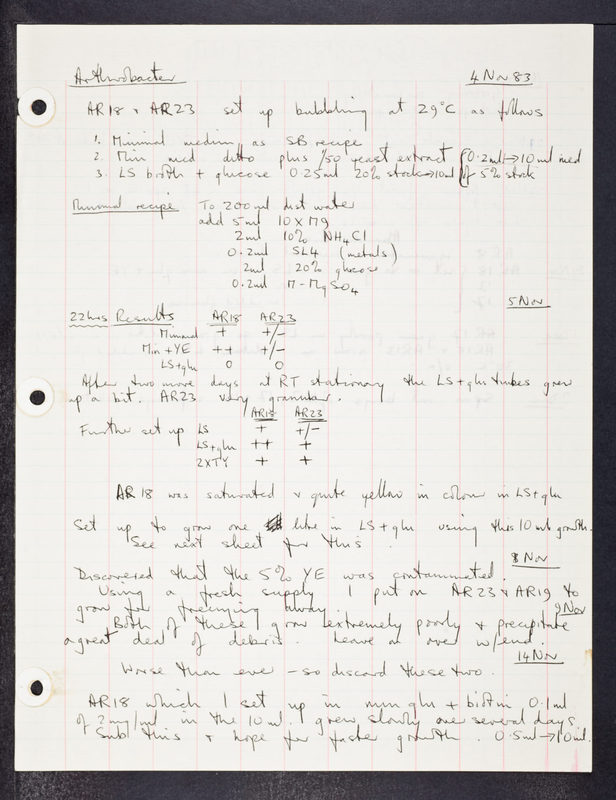 Arthrobacter 4 Nov 83
AR18 & AR23 set up bubbling at 29°C as follows
1. Minimal medium as SB recipe
2. Min med ditto plus 1/50 yeast extract (0.2ml → 10ml med
3. LS broth + glucose 0.25ml 20% stock → 10ml (of 5% stock
Minimal recipe To 200ml dist water
add 5ml 10 x Mg
2ml 10% NH4Cl
0.2ml SL4 (metals)
2ml 20% glucose
0.2ml M-MgSO4
5 Nov
22hrs Results AR18 AR23
Minimal + +/-
Min + YE ++ +/-
LS + glu 0 0
After two more days at RT stationary the LS + glu tubes grew
up a bit. AR23 very granular.
AR18 AR23
Further set up LS + +/-
LS + glu ++ +
2XTY + +
AR18 was saturated & quite yellow in colour in LS + glu
Set up to grow one litre in LS + glu using this 10ml growth.
See next sheet for this.
8 Nov
Discovered that the 5% YE was contaminated.
Using a fresh supply I put on AR23 & AR19 to
grow for freezing away.
9 Nov
Both of these grow extremely poorly & precipitate
a great deal of debris. Leave on over w/end.
14 Nov
Worse than ever - so discard these two.
AR18 which I set up in min glu + biotin 0.1ml
of 2mg/ml in the 10ml. grew slowly over several days
Sub this & hope for faster growth. 0.5ml → 10ml.